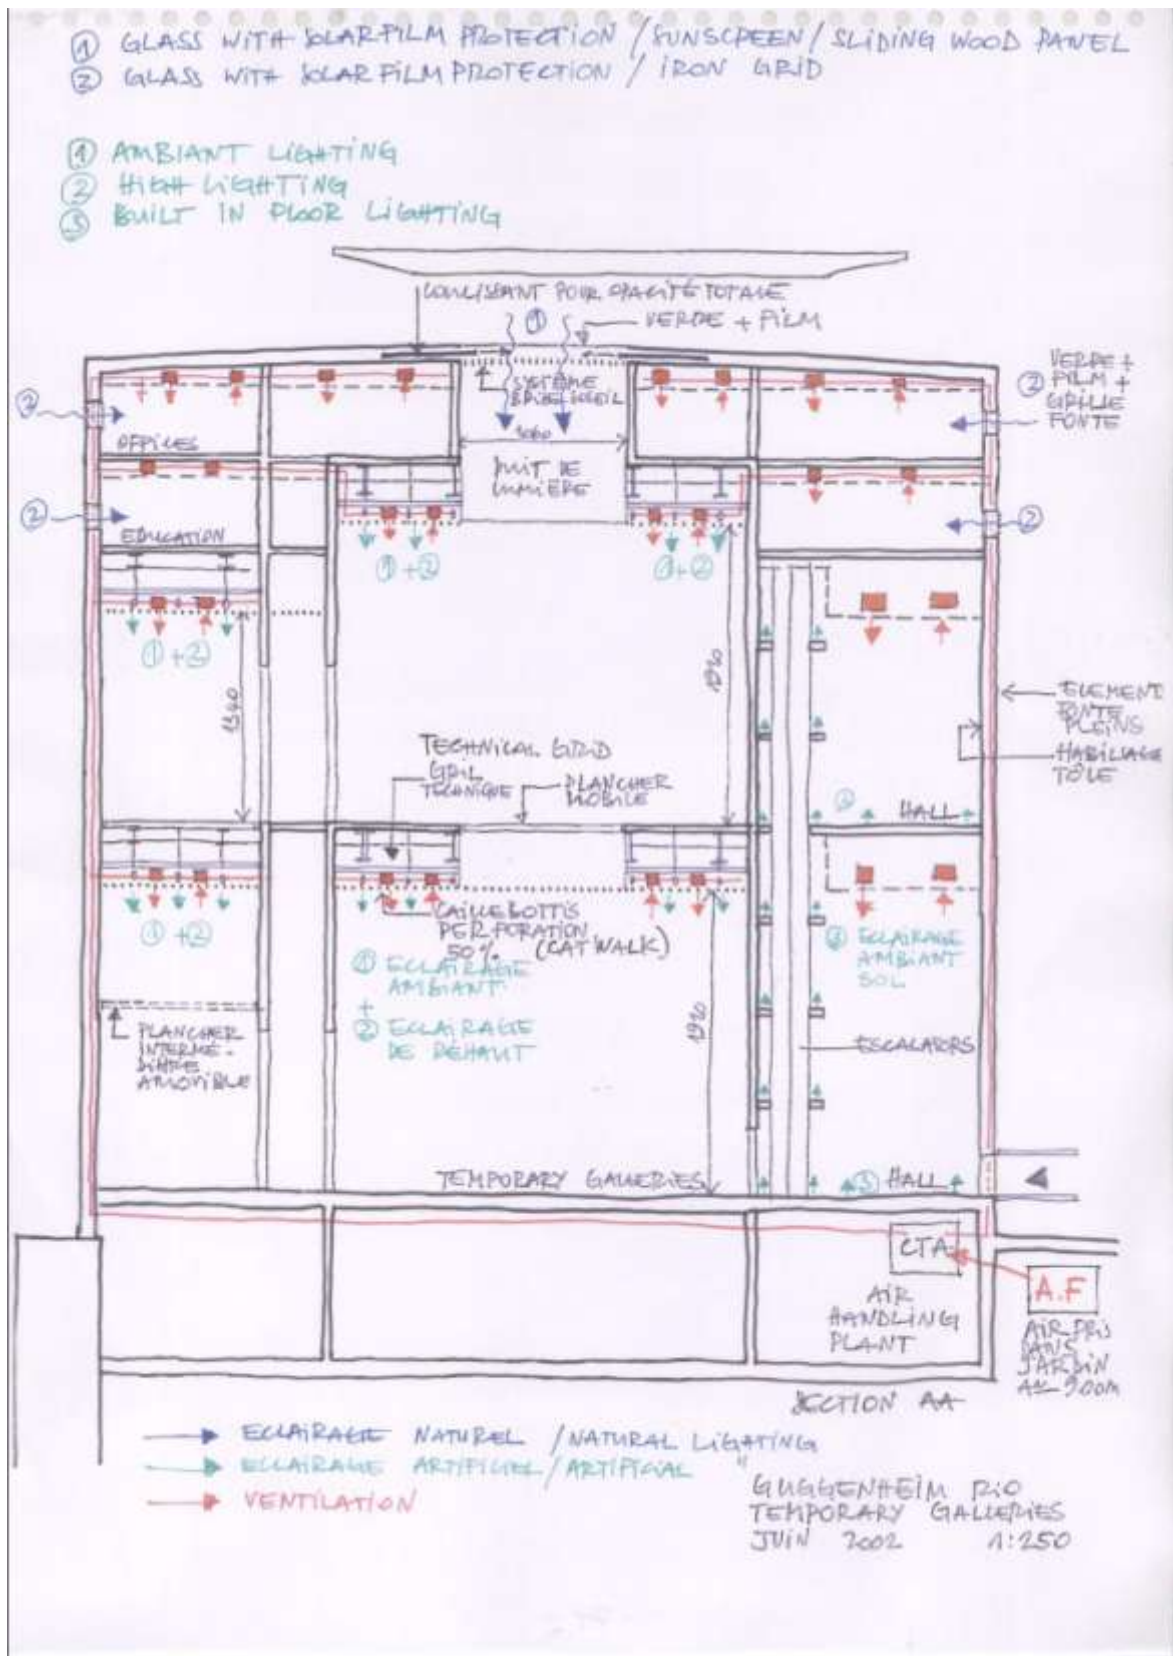 ① GLASS WITH SOLAR FILM PROTECTION / SUNSCREEN / SLIDING WOOD PANEL
② GLASS WITH SOLAR FILM PROTECTION / IRON GRID
① AMBIANT LIGHTING
② HIGH LIGHTING
③ BUILT IN FLOOR LIGHTING
COULISSANT POUR OPACITÉ TOTALE
①
VERRE + FILM
SYSTÈME
BRISE SOLEIL
VERRE +
② FILM +
GRILLE
FONTE
②
OFFICES
PUIT DE
LUMIÈRE
②
EDUCATION
②
①+②
①+②
①+②
1340
1920
TECHNICAL GRID
GRIL
TECHNIQUE
PLANCHER
MOBILE
ELEMENT
FONTE
PLEINS
HABILLAGE
TÔLE
③
HALL
①+②
CAILLEBOTTIS
PERFORATION
50% (CATWALK)
① ECLAIRAGE
AMBIANT
+
② ECLAIRAGE
DE DEHAUT
③ ECLAIRAGE
AMBIANT
SOL
1920
PLANCHER
INTERMÉ-
DIAIRE
AMOVIBLE
ESCALATORS
TEMPORARY GALLERIES
③ HALL
CTA
A.F
AIR
HANDLING
PLANT
AIR PRIS
DANS
JARDIN
SECTION AA
ECLAIRAGE NATUREL / NATURAL LIGHTING
ECLAIRAGE ARTIFICIEL / ARTIFICIAL "
VENTILATION
GUGGENHEIM RIO
TEMPORARY GALLERIES
JUIN 2002 1:250